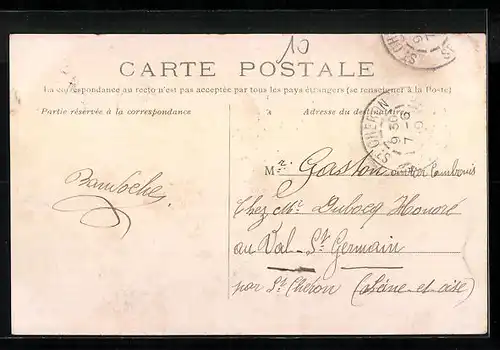 10
CARTE POSTALE
La correspondance au recto n'est pas acceptée par tous les pays étrangers (se renseigner à la Poste)
Partie réservée à la correspondance
Adresse du destinataire
St CHERON
9 30
7 - 6
Mr. Gaston
Chez Mr. Dubocq Honoré
au Val-St Germain
par St Chéron (Seine-et-oise)